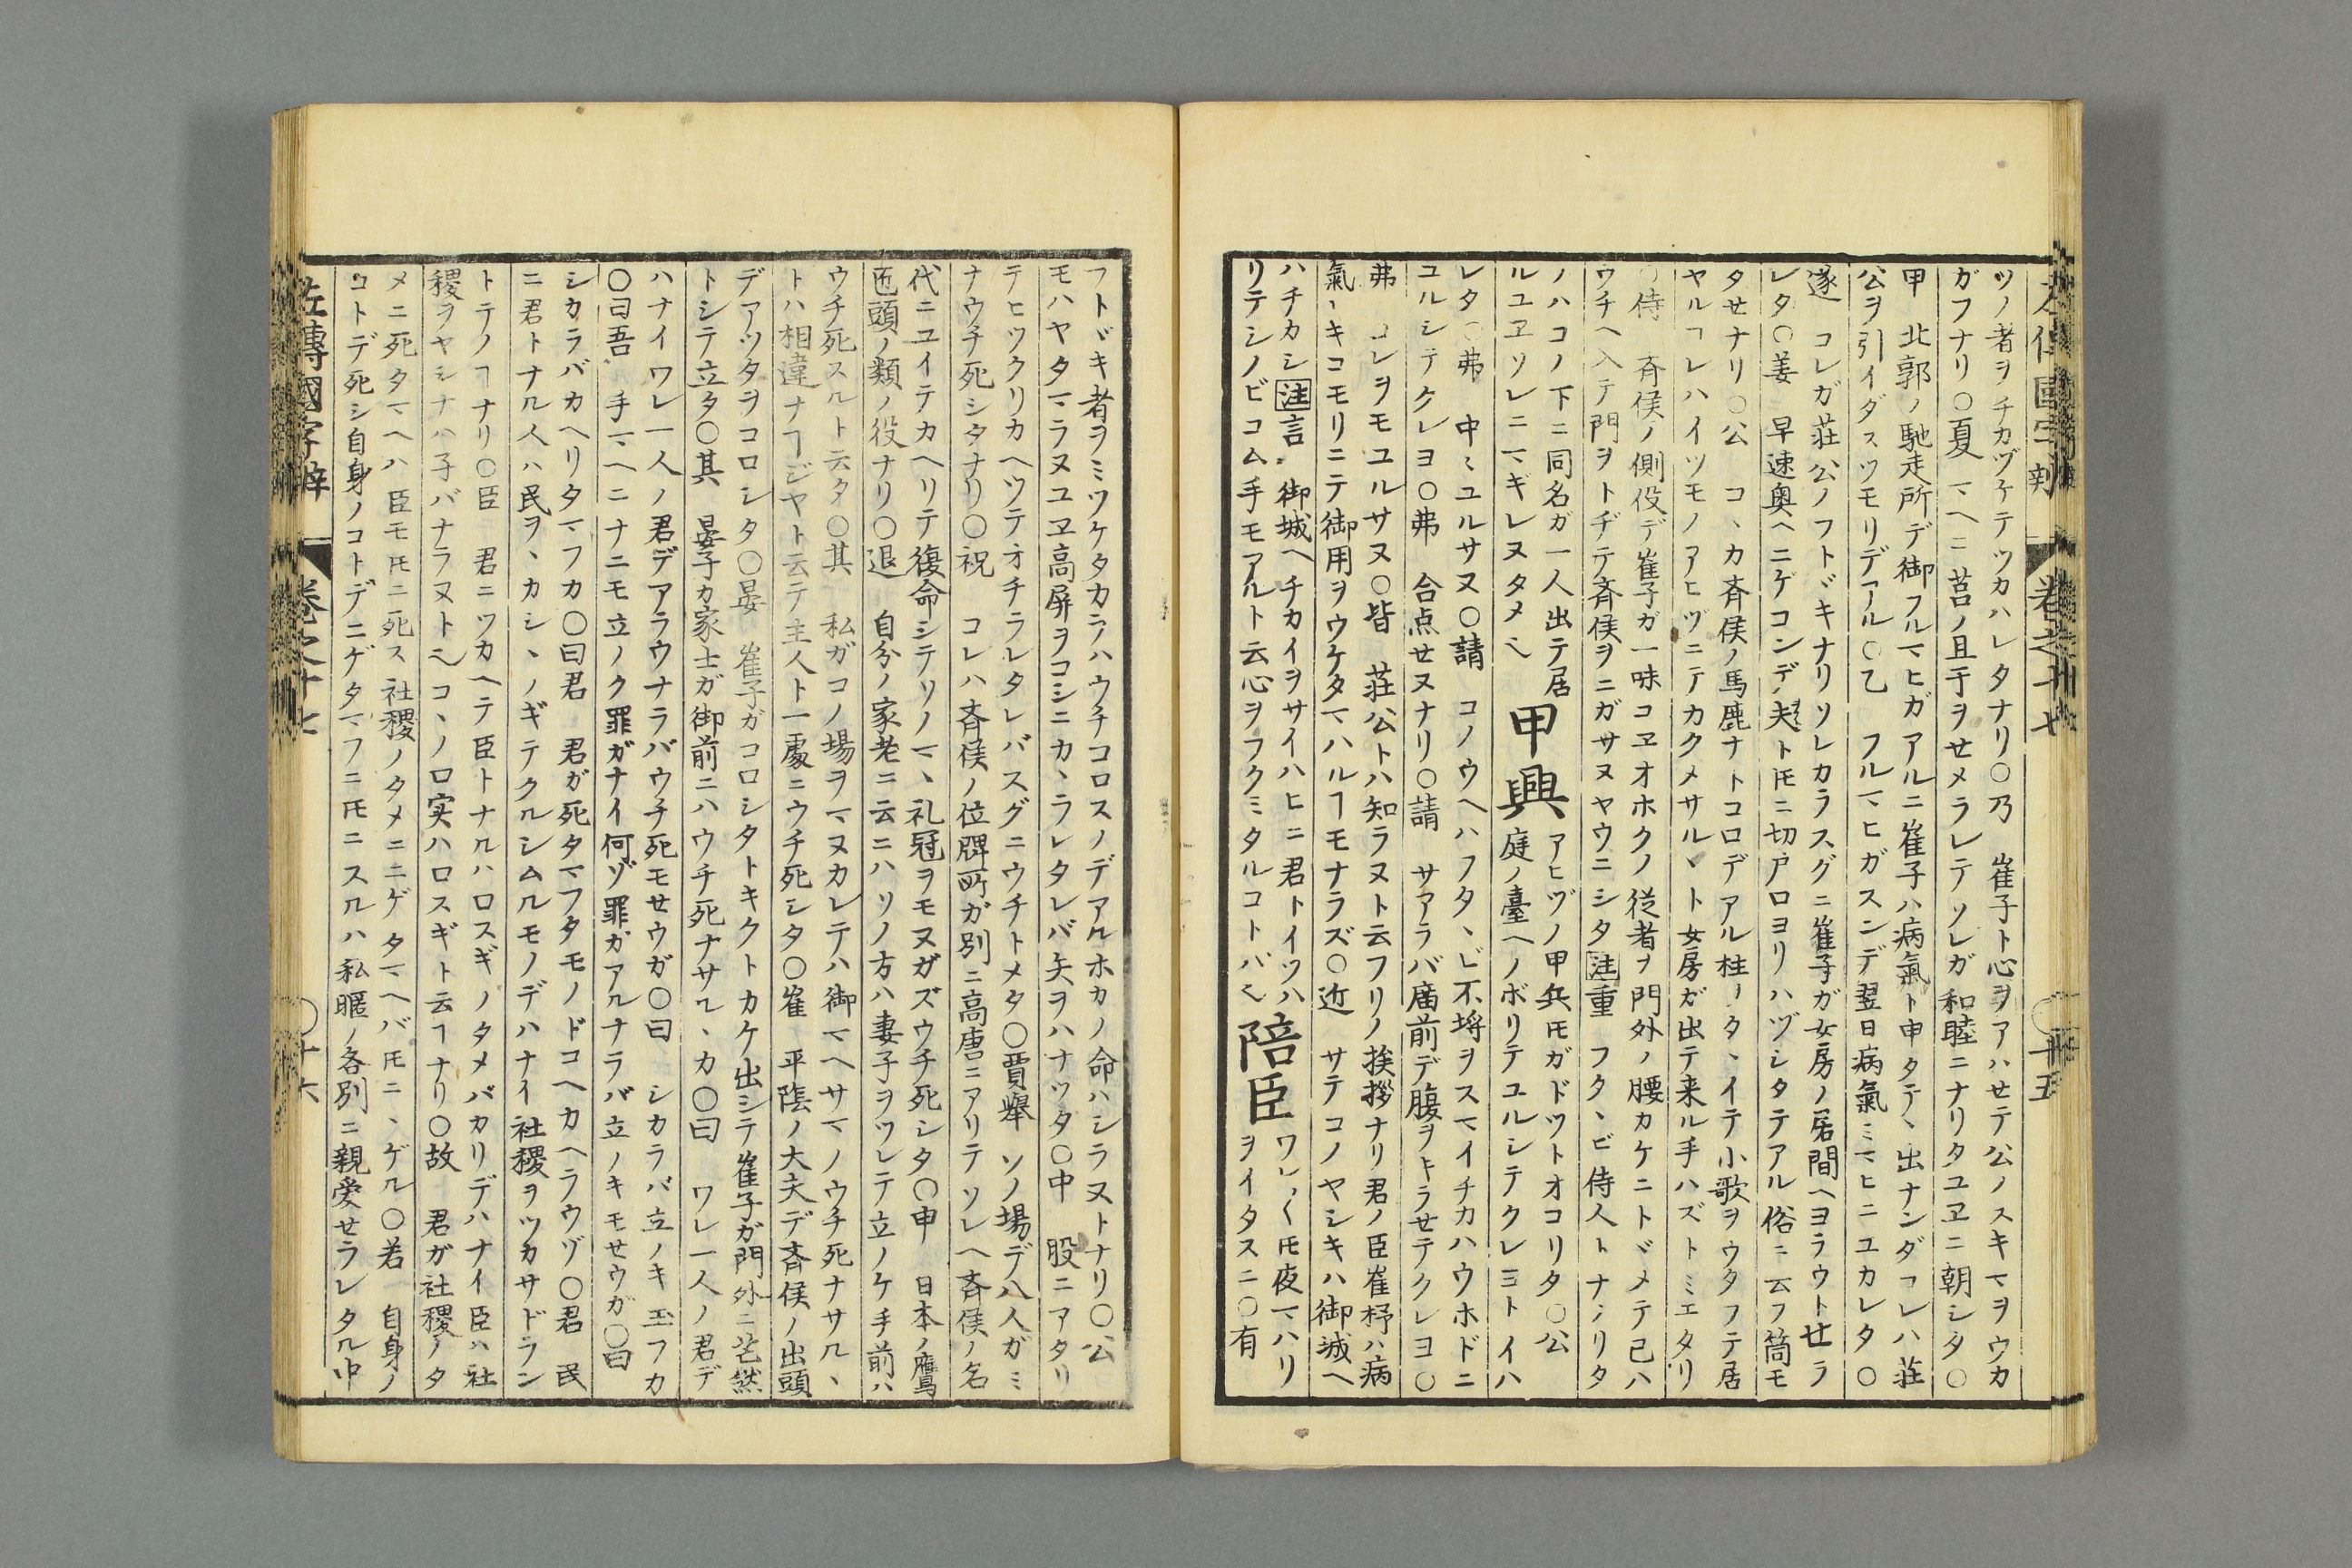 左傳國字辨 卷之十七 〇十五
ツノ者ヲチカヅケテツカハレタナリ〇乃 崔子ト心ヲアハせテ公ノスキマヲウカ
ガフナリ〇夏 マヘニ莒ノ且于ヲせメラレテソレガ和睦ニナリタユヱニ朝シタ〇
甲 北郭ノ馳走所デ御フルマヒガアルニ崔子ハ病氣ト申タテヽ出ナンダヿレハ莊
公ヲ引イダスツモリデアル〇乙 フルマヒガスンデ翌日病氣ミマヒニユカレタ〇
遂 コレガ莊公ノフトヾキナリソレカラスグニ崔子ガ女房ノ居間ヘヨラウトせラ
レタ〇姜 早速奥ヘニゲコンデ夫トㇳモニ切戸口ヨリハヅシタテアル俗ニ云フ筒モ
タせナリ〇公 コヽカ斉侯ノ馬鹿ナトコロデアル柱ノタヽイテ小歌ヲウタフテ居
ヤルヿレハイツモノアヒヅニテカクメサルヽト女房ガ出テ来ル手ハズトミエタリ
〇侍 斉侯ノ側役デ崔子ガ一味コヱオホクノ從者ヲ門外ノ腰カケニトヾメテ己ハ
ウチヘ入テ門ヲトヂテ斉侯ヲニガサヌヤウニシタ 注重 フタヽビ侍人トナヽリタ
ノハコノ下ニ同名ガ一人出テ居 甲興 アヒヅノ甲兵𪜈ガドツトオコリタ〇公
ルユヱソレニマギレヌタメ也 庭ノ臺ヘノボリテユルシテクレヨトイハ
レタ〇弗 中々ユルサヌ〇請 コノウヘハフタヽビ不埒ヲスマイチカハウホドニ
ユルシテクレヨ〇弗 合点せヌナリ〇請 サアラバ廟前デ腹ヲキラせテクレヨ〇
弗 コレヲモユルサヌ〇皆 莊公トハ知ラヌト云フリノ挨拶ナリ君ノ臣崔杼ハ病
氣ヽキコモリニテ御用ヲウケタマハルヿモナラズ〇近 サテコノヤシキハ御城ヘ
ハチカシ 注言 御城ヘチカイヲサイハヒニ君トイツハ 陪臣 ワレ〱𪜈夜マハリ
リテシノビコム手モアルト云心ヲフクミタルコトバ也 ヲイタスニ〇有
フトヾキ者ヲミツケタカラハウチコロスノデアルホカノ命ハシラヌトナリ〇公
モハヤタマラヌユヱ高屏ヲコシニカヽラレタレバ矢ヲハナツタ〇中 股ニアタリ
テヒツクリカヘツテオチラレタレバスグニウチトメタ〇賈舉 ソノ場デ八人ガミ
ナウチ死シタナリ〇祝 コレハ斉侯ノ位牌所ガ別ニ高唐ニアリテソレヘ斉侯ノ名
代ニユイテカヘリテ復命シテソノマヽ礼冠ヲモヌガズウチ死シタ〇申 日本ノ鷹
匠頭ノ類ノ役ナリ〇退 自分ノ家老ニ云ニハソノ方ハ妻子ヲツレテ立ノケ手前ハ
ウチ死スルト云タ〇其 私ガコノ場ヲマヌカレテハ御マヘサマノウチ死ナサルヽ
トハ相違ナヿジヤト云テ主人ト一處ニウチ死シタ〇崔 平陰ノ大夫デ斉侯ノ出頭
デアツタヲコロシタ〇晏 崔子ガコロシタトキクトカケ出シテ崔子ガ門外ニ茫然
トシテ立タ〇其 晏子カ家士ガ御前ニハウチ死ナサルヽカ〇曰 ワレ一人ノ君デ
ハナイワレ一人ノ君デアラウナラバウチ死モせウガ〇曰 シカラバ立ノキ玉フカ
〇曰吾 手マヘニナニモ立ノク罪ガナイ何ゾ罪ガアルナラバ立ノキモせウガ〇曰
シカラバカヘリタマフカ〇曰君 君ガ死タマフタモノドコヘカヘラウゾ〇君 民
ニ君トナル人ハ民ヲヽカシヽノギテクルシムルモノデハナイ社稷ヲツカサドラン
トテノヿナリ〇臣 君ニツカヘテ臣トナルハ口スギノタメバカリデハナイ臣ハ社
稷ヲヤシナハ子バナラヌト也コヽノ口実ハ口スギト云ヿナリ〇故 君ガ社稷ノタ
メニ死タマヘハ臣モ𪜈ニ死ス社稷ノタメニニゲタマヘバ𪜈ニヽゲル〇若 自身ノ
コトデ死シ自身ノコトデニゲタマフニ𪜈ニスルハ私暱ノ各別ニ親愛せラレタル中
左傳國字辨 卷之十七 〇十六